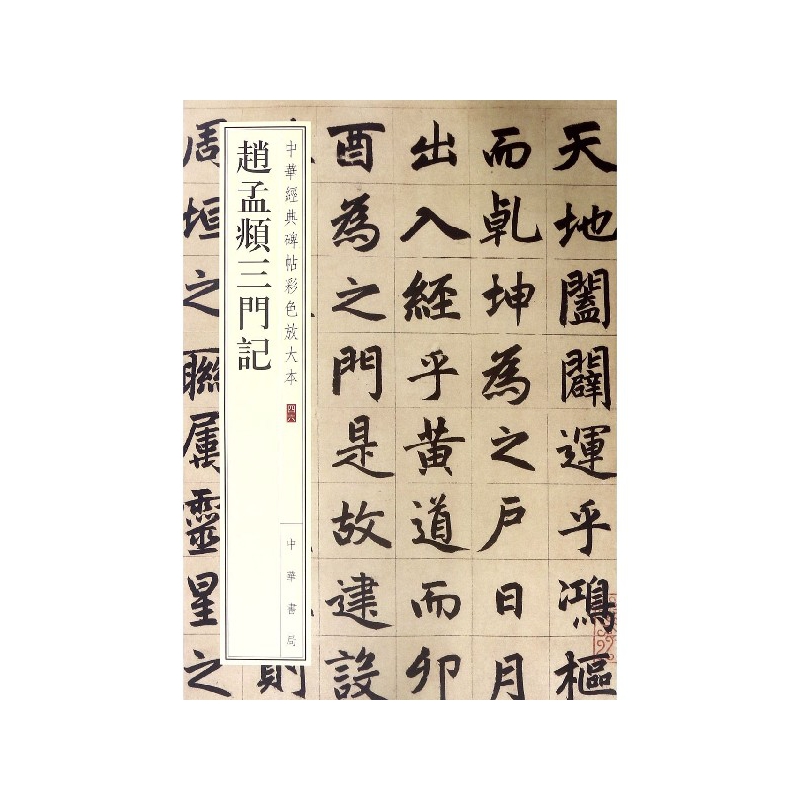 天地闔闢運乎鴻樞
而乹坤為之戶日月
出入經乎黄道而卯
酉為之門是故建設
則
中華經典碑帖彩色放大本
四六
趙孟頫三門記
中華書局
周垣之聯屬靈星之